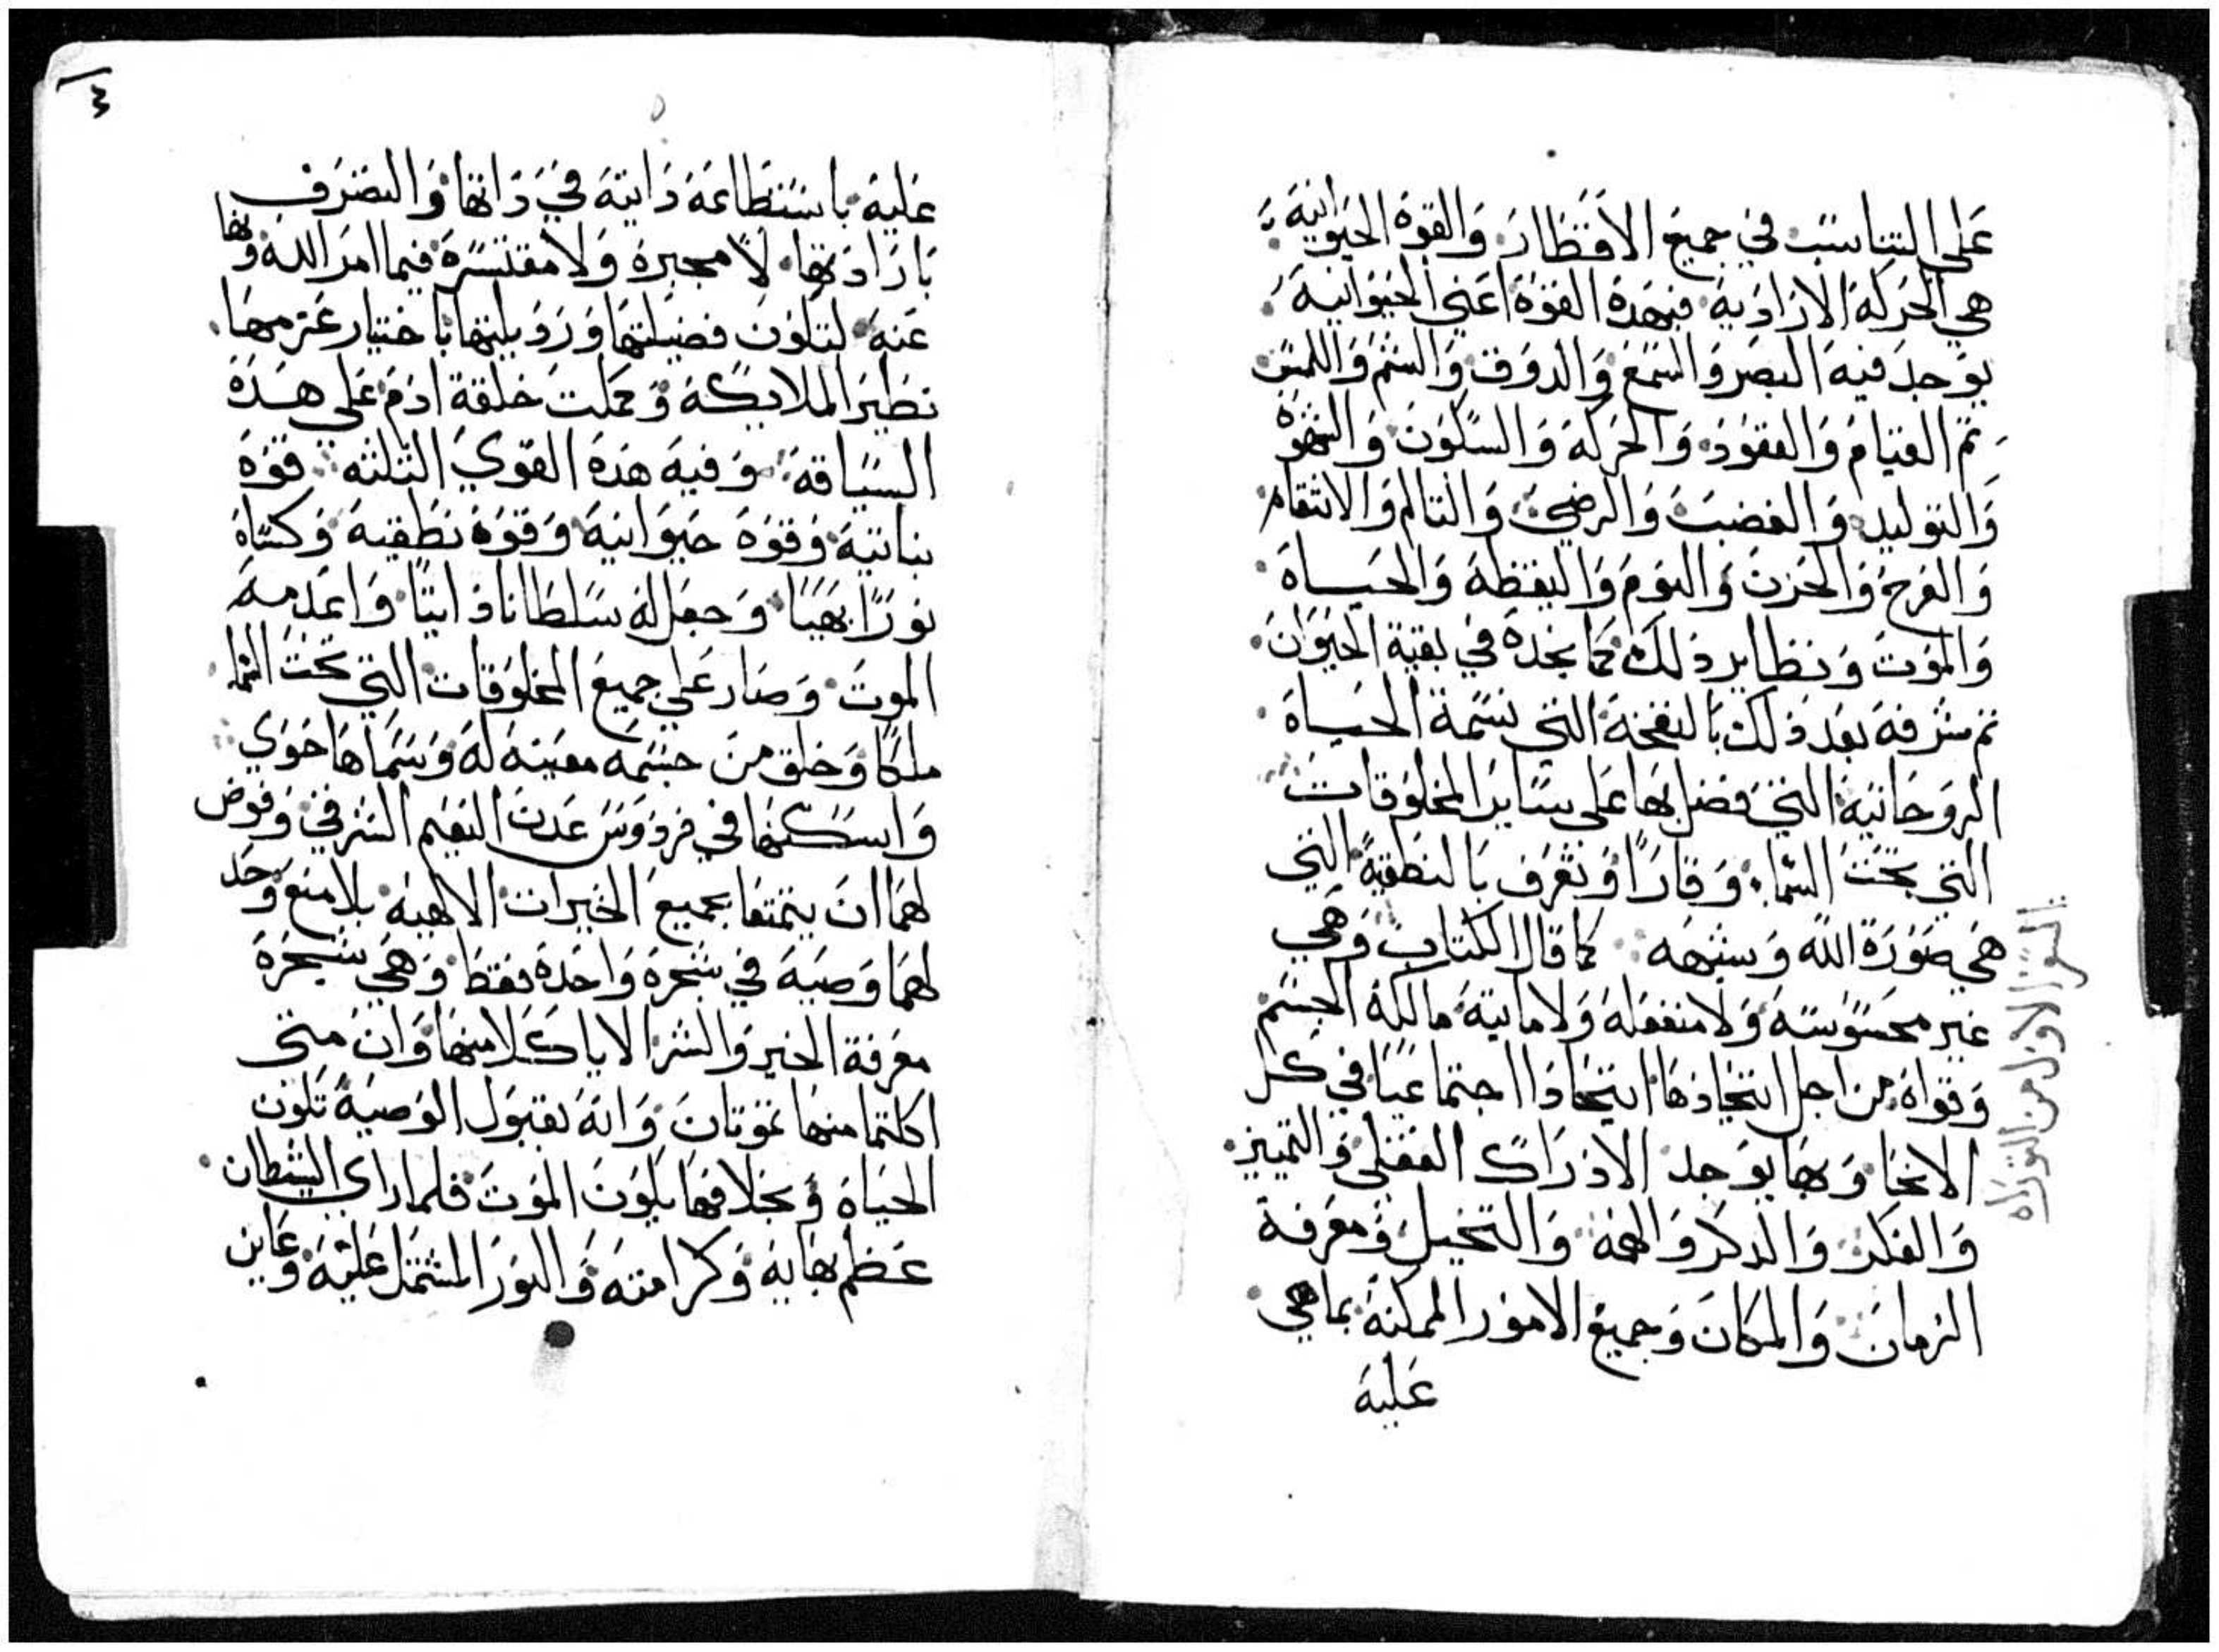 على التناسب في جميع الاقطار والقوة الحيوانية
هي الحركة الارادية فبهذه القوة اعني الحيوانية
يوجد فيه البصر والسمع والدوق والشم واللمس
ثم القيام والقعود والحركة والسكون والشهوة
والتوليد والغضب والرضي والتالم والانتقام
والفرح والحزن والنوم واليقظة والحياة
والموت ونظاير ذلك مما نجده في بقية الحيوان
ثم شرفه بعد ذلك بالنفخة التي نسمة الحياة
الروحانية التي فضل بها على ساير المخلوقات
التي تحت السماء وقارا وتعرف بالنطقية التي
هي صورة الله وشبهه كما قال الكتاب وهي
غير محسوسة ولا منفعلة ولا مايتة مالكة الجسم
وقواه من اجل اتحادها اتحادا اجتماعيا في كل
الانحا وبها يوجد الادراك العقلي والتمييز
والفكر والذكر والهمة والتخيل ومعرفة
الزمان والمكان وجميع الامور الممكنة بما هي
عليه
السفر الاول من التوراه
٤
عليه باستطاعة داتية في داتها والتصرف
بارادتها لا مجبرة ولا مقتسرة فيما امر الله ونها
عنه لتكون فضيلتها ورديلتها باختيار عزمها
نظير الملايكة وكملت خلقة ادم على هذه
السياقة وفيه هذه القوي الثلثه قوة
نباتية وقوة حيوانية وقوة نطقية وكساه
نورا بهيا وجعل له سلطانا ذاتيا واعدمه
الموت وصار على جميع المخلوقات التي تحت السما
ملكا وخلق من جسمه معينه له وسماها حوي
واسكنها في فردوس عدن النعيم الشرقي وفوض
لهما ان يتمتعا بجميع الخيرات الالاهية بلا منع وحد
لهما وصية في شجرة واحدة فقط وهي شجرة
معرفة الخير والشر الا ياكلا منها وان متى
اكلتما منها تموتان وانه بقبول الوصية تكون
الحياة وبخلافها يكون الموت فلما راي الشيطان
عظم بهايه وكرامته والنور المشتمل عليه وعاين